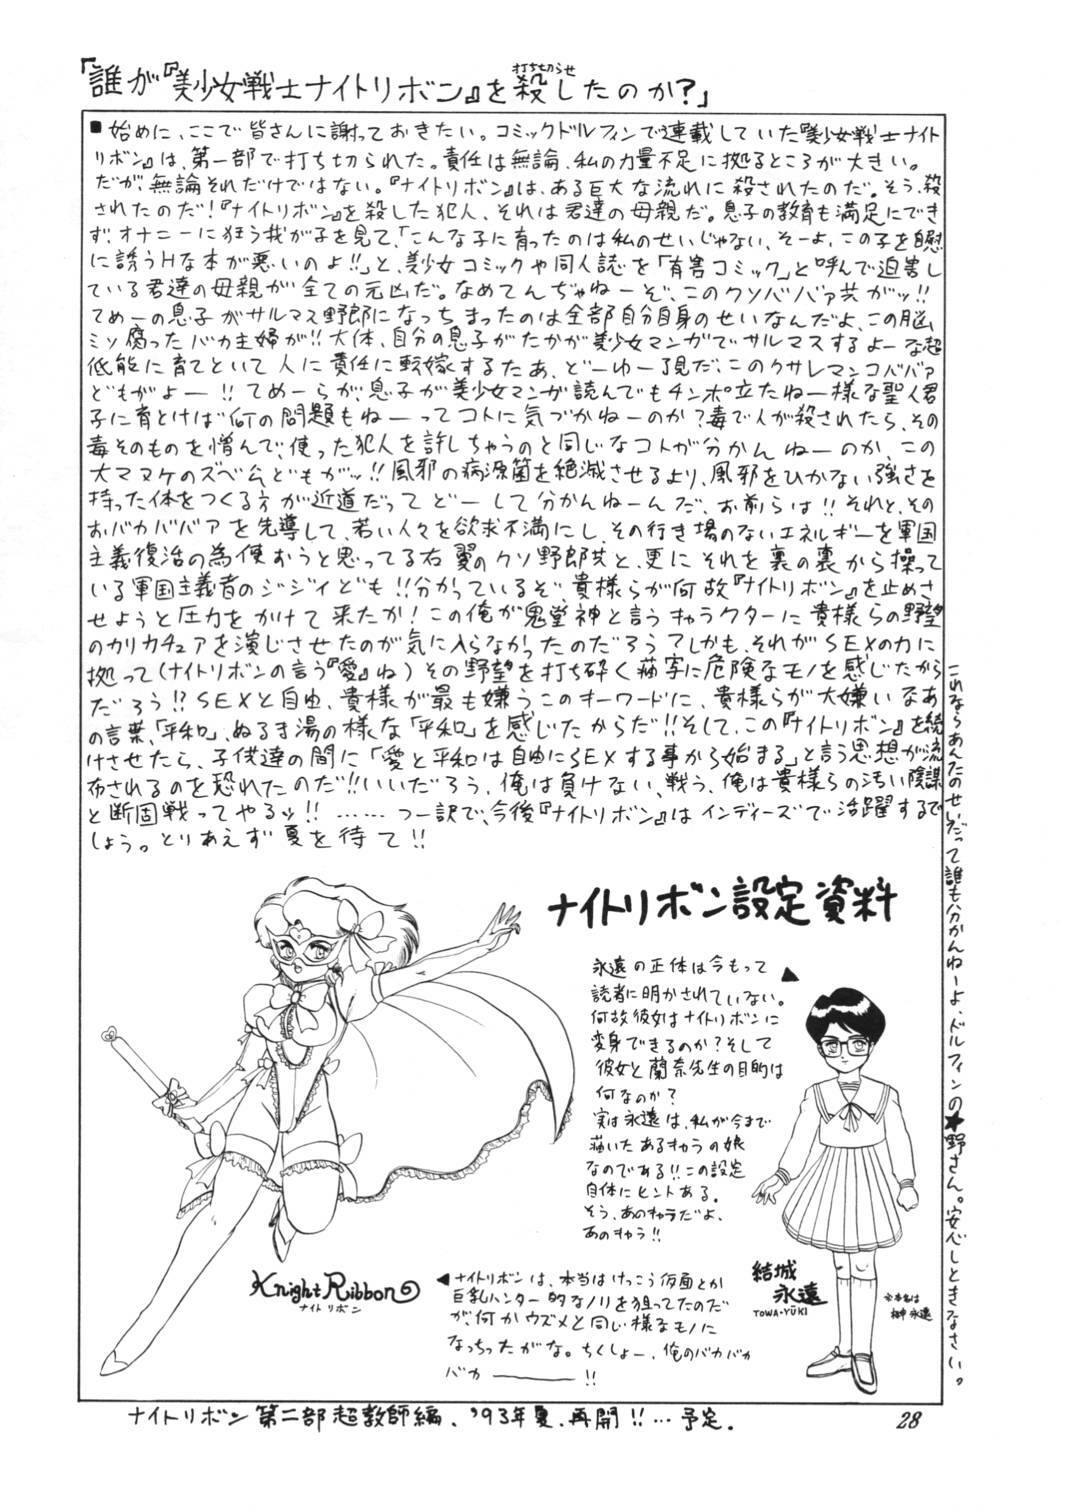 「誰が『美少女戦士ナイトリボン』を殺したのか?」
打ち切らせ
■始めに、ここで皆さんに謝っておきたい。コミックドルフィンで連載していた『美少女戦士ナイト
リボン』は、第一部で打ち切られた。責任は無論、私の力量不足に拠るところが大きい。
だが、無論それだけではない。『ナイトリボン』は、ある巨大な流れに殺されたのだ。そう、殺
されたのだ!『ナイトリボン』を殺した犯人、それは君達の母親だ。息子の教育も満足にでき
ず、オナニーに狂う我が子を見て、「こんな子に育ったのは私のせいじゃない、そーよ、この子を自慰
に誘うHな本が悪いのよ!!」と、美少女コミックや同人誌を「有害コミック」と呼んで迫害し
ている君達の母親が全ての元凶だ。なめてんぢゃねーぞ、このクソババァ共がッ!!
てめーの息子がサルマス野郎になっちまったのは全部自分自身のせいなんだよ、この脳
ミソ腐ったバカ主婦が!!大体、自分の息子がたかが美少女マンガでサルマスするよーな超
低能に育てといて人に責任に転嫁するたあ、どーゆー了見だ、このクサレマンコババァ
どもがよー!!てめーらが、息子が美少女マンガ読んでもチンポ立たねー様な聖人君
子に育とけば何の問題もねーってコトに気づかねーのか?毒で人が殺されたら、その
毒そのものを憎んで、使った犯人を許しちゃうのと同じなコトが分かんねーのか、この
大マヌケのズベ公どもがッ!!風邪の病源菌を絶滅させるより、風邪をひかない強さを
持った体をつくる方が近道だってどーして分かんねーんだ、お前らは!!それと、その
おバカババアを先導して、若い人々を欲求不満にし、その行き場のないエネルギーを軍国
主義復活の為使おうと思ってる右翼のクソ野郎共と、更にそれを裏の裏から操って
いる軍国主義者のジジイども!!分かっているぞ、貴様らが何故『ナイトリボン』を止めさ
せようと圧力をかけて来たか!この俺が鬼堂神と言うキャラクターに貴様らの野望
のカリカチュアを演じさせたのが気に入らなかったのだろう?しかも、それがSEXの力に
拠って(ナイトリボンの言う『愛』ね)その野望を打ち砕く描写に危険なモノを感じたから
だろう!?SEXと自由、貴様が最も嫌うこのキーワードに、貴様らが大嫌いなあ
の言葉、「平和」、ぬるま湯の様な「平和」を感じたからだ!!そして、この『ナイトリボン』を続
けさせたら、子供達の間に「愛と平和は自由にSEXする事から始まる」と言う思想が流
布されるのを恐れたのだ!!いいだろう、俺は負けない、戦う、俺は貴様らの汚い陰謀
と断固戦ってやるッ!!……つー訳で、今後『ナイトリボン』はインディーズで活躍するで
しょう。とりあえず夏を待て!!
これならあんたのせいだって誰も分かんねーよ、ドルフィンの★野さん。安心しときなさい。
ナイトリボン設定資料
▲
永遠の正体は今もって
読者に明かされていない。
何故彼女はナイトリボンに
変身できるのか?そして
彼女と蘭奈先生の目的は
何なのか?
実は永遠は、私が今まで
描いたあるキャラの娘
なのである!!この設定
自体にヒントある。
そう、あのキャラだよ、
あのキャラ!!
結城
永遠
TOWA・YŪKI
※本名は
榊永遠
Knight Ribbon
ナイトリボン
◀ナイトリボンは、本当はけっこう仮面とか
巨乳ハンター的なノリを狙ってたのだ
が、何かウズメと同じ様なモノに
なっちったがな。ちくしょー、俺のバカバカ
バカ————!!
ナイトリボン第二部超教師編、'93年夏、再開!!…予定。
28